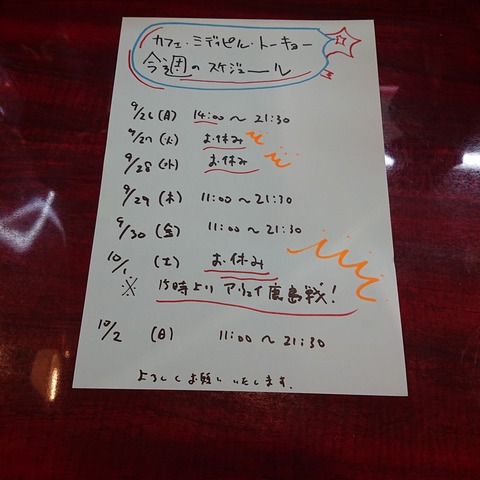 カフェ・ミディピル・トーキョー
今週のスケジュール
9/26(月) 14:00〜21:30
9/27(火) お休み
9/28(水) お休み
9/29(木) 11:00〜21:30
9/30(金) 11:00〜21:30
10/1(土) お休み
※15時よりアウェイ鹿島戦!
10/2(日) 11:00〜21:30
よろしくお願いいたします.